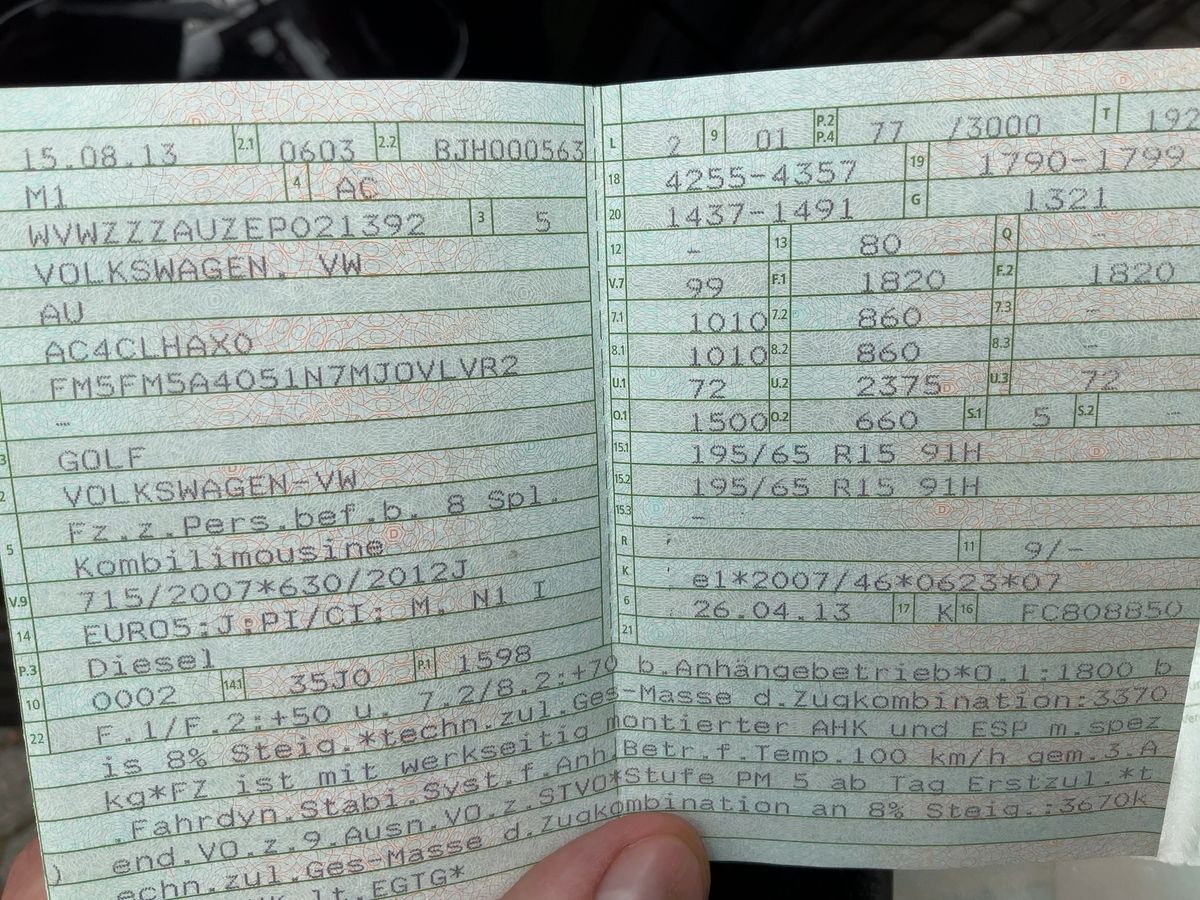 15.08.13 2.1 0603 2.2 BJH000563
M1 4 AC
WVWZZZAUZEP021392 3 5
VOLKSWAGEN, VW
AU
AC4CLHAX0
FM5FM5A4051N7MJOVLVR2
–
3 GOLF
2 VOLKSWAGEN-VW
Fz.z.Pers.bef.b. 8 Spl.
5 Kombilimousine
V.9 715/2007*630/2012J
14 EURO5;J;PI/CI; M, N1 I
P.3 Diesel P.1 1598
10 0002 14.1 35J0
22 F.1/F.2:+50 u. 7.2/8.2:+70 b.Anhängebetrieb*O.1:1800 b
is 8% Steig.*techn.zul.Ges-Masse d.Zugkombination:3370
kg*FZ ist mit werkseitig montierter AHK und ESP m.spez
.Fahrdyn.Stabi.Syst.f.Anh Betr.f.Temp.100 km/h gem.3.A
) end.VO.z.9.Ausn.VO.z.STVO*Stufe PM 5 ab Tag Erstzul.*t
echn.zul.Ges-Masse d.Zugkombination an 8% Steig.:3670k
lt.EGTG*
L 2 9 01 P.2 P.4 77 /3000 T 192
18 4255-4357 19 1790-1799
20 1437-1491 G 1321
12 – 13 80 Q –
V.7 99 F.1 1820 F.2 1820
7.1 1010 7.2 860 7.3 –
8.1 1010 8.2 860 8.3 –
U.1 72 U.2 2375 U.3 72
O.1 1500 O.2 660 S.1 5 S.2 –
15.1 195/65 R15 91H
15.2 195/65 R15 91H
15.3 –
R 11 9/-
K e1*2007/46*0623*07
6 26.04.13 17 K 16 FC808850
21